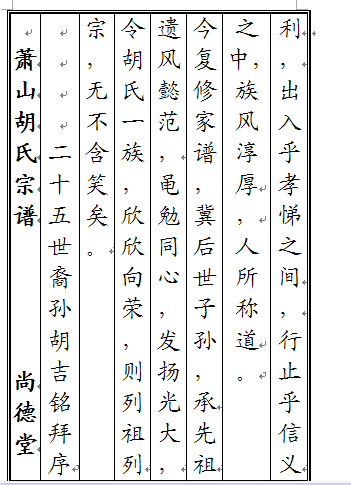 利，出入乎孝悌之间，行止乎信义
之中，族风淳厚，人所称道。
今复修家谱，冀后世子孙，承先祖
遗风懿范，黾勉同心，发扬光大，
令胡氏一族，欣欣向荣，则列祖列
宗，无不含笑矣。
二十五世裔孙胡吉铭拜序
萧山胡氏宗谱 尚德堂